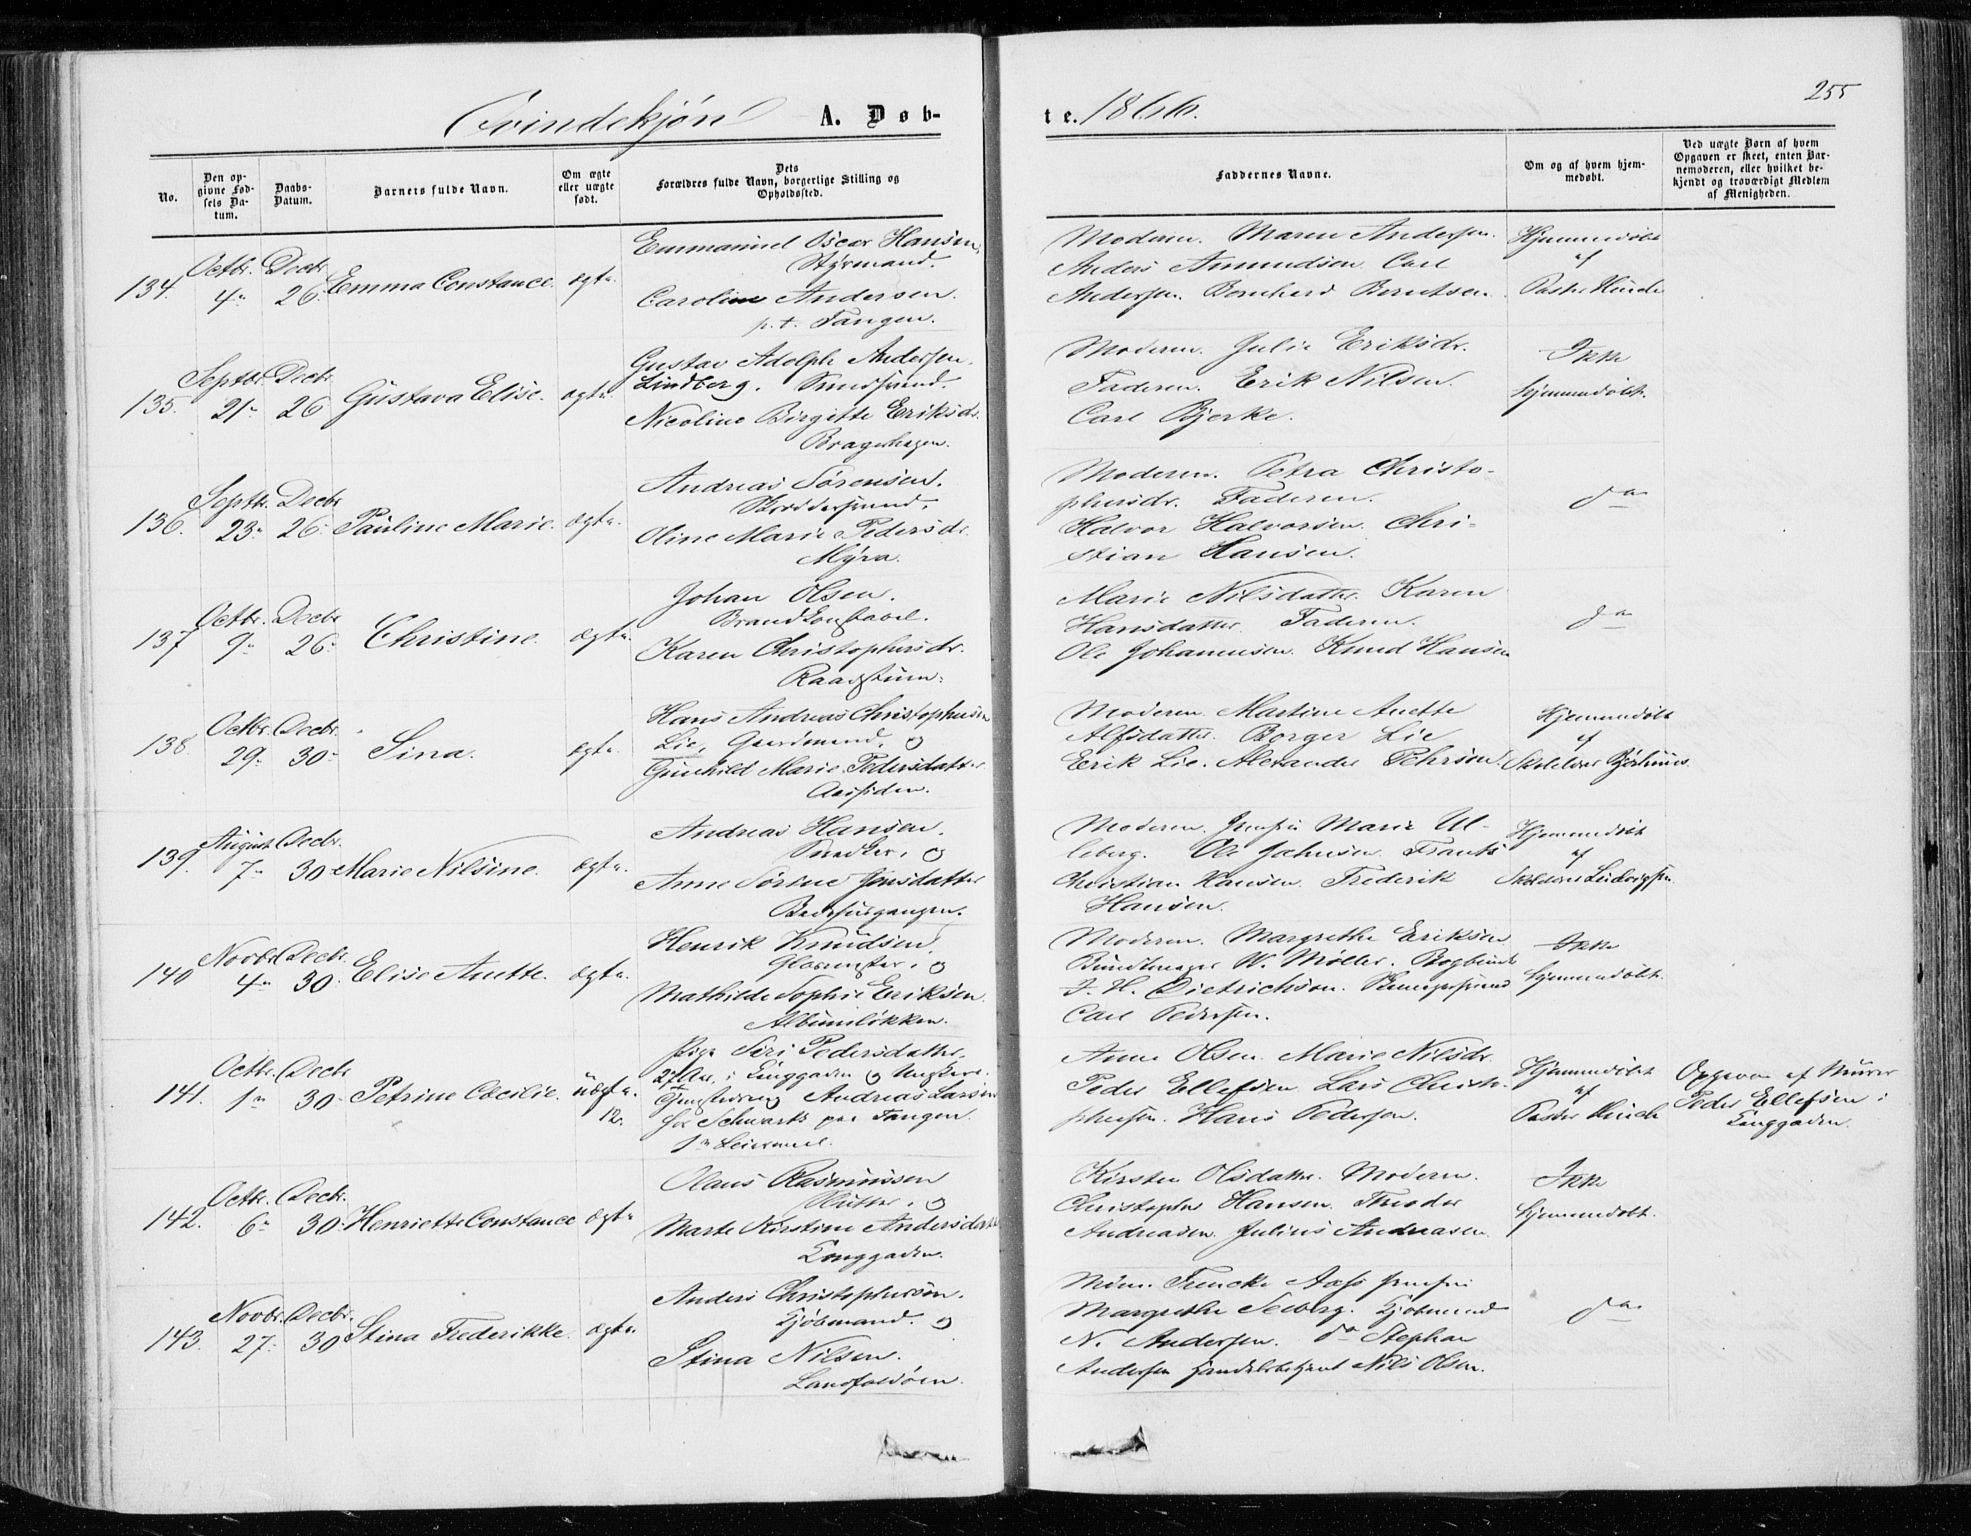 255
Qvindekjøn A. Døb-
te. 1866.
No.
Den op-
givne Fød-
sels Da-
tum.
Daabs-
Datum.
Barnets fulde Navn.
Om ægte
eller uægte
født.
Dets
Forældres fulde Navn, borgerlige Stilling og
Opholdssted.
Faddernes Navne.
Om og af hvem hjem-
medøbt.
Ved uægte Børn af hvem
Opgaven er skeet, enten Bar-
nemoderen, eller hvilket be-
kjendt og troværdigt Medlem
af Menigheden.
134. Octbr. 4. Decbr. 26. Emma Constance. ægte.
Emmanuel Oscar Hansen,
Styrmand.
Caroline Andersen.
p. t. Tangen.
Moderen. Maren Andersen.
Anders Amundsen. Carl
Andersen. Bernhard Berntsen.
Hjemmedøbt
af
Pastor Hinch
135. Septbr. 21. Decbr. 26 Gustava Elise. ægte.
Gustav Adolph Andersen
Lindberg.
Nicoline Birgitte Eriksdr.
Bragerhagen.
Moderen. Julie Eriksdr.
Faderen. Erik Nilsen.
Carl Bjerke.
Ikke
hjemmedøbt.
136. Septbr. 23. Decbr. 26. Pauline Marie. ægte.
Andreas Sørensen.
Oline Marie Pedersdr.
Myra.
Moderen. Petra Christo-
phersdr. Faderen.
Halvor Halvorsen. Chri-
stian Hansen.
do
137 Octbr. 9. Decbr. 26. Christine. ægte.
Johan Olsen.
Brandkonstabel.
Karen Christophersdr.
Raadstuen.
Marie Nilsdatter. Karen
Hansdatter. Faderen.
Ole Johannesen. Knud Hansen
do
138. Octbr. 29. Decbr. 30. Sina. ægte.
Hans Andreas Christophersen
Lie, Gaardmand. og
Gunhild Marie Pedersdatter
Aassiden.
Moderen. Martine Anette
Alfsdatter. Borger Lie
Erik Lie. Alexander Pehrson.
Hjemmedøbt
af
139. August 7. Decbr. 30 Marie Nilsine. ægte.
Andreas Hansen.
Snedker. og
Anne Sørine Jensdatter
Moderen. Jomfru Marie Ul-
leberg. Ole Johnsen. Frants
Christian Hansen. Frederik
Hansen.
Hjemmedøbt
af
140 Novbr. 4. Decbr. 30. Elise Anette. ægte.
Henrik Knudsen,
Glarmester. og
Mathilde Sophie Eriksen.
Albumsløkken.
Moderen. Margrethe Eriksen
Bundtmager W. Møller. Bogbind.
J. H. Dietrichson.
Carl Pedersen.
Ikke
hjemmedøbt.
141. Octbr. 1. Decbr. 30. Petrine Cæcilie. uægte.
12.
Pige Siri Pedersdatter,
27 Aar. i Langgaden og Ungkarl
Andreas Larsen
for Schwartz paa Tangen.
1ste Leiermaal.
Anne Olsen. Marie Nilsdr.
Peder Ellefsen. Lars Christo-
phersen. Hans Pedersen.
Hjemmedøbt
af
Pastor Hinch
Opgaven af Murer
Peder Ellefsen i
Langgaden.
142. Octbr. 6. Decbr. 30. Henriette Constance ægte
Olaus Rasmussen
og
Marte Kirstine Andersdatter
Langgaden.
Kirsten Olsdatter. Moderen.
Christopher Hansen. Theodor
Andreasen. Julius Andreasen.
Ikke
hjemmedøbt.
143. Novbr. 27. Decbr. 30 Stina Frederikke. ægte.
Anders Christophersen.
Kjøbmand. og
Stina Nilsen.
Landfaldøen.
Jomfru
Margrethe Seeberg. Kjøbmand
N. Andersen. do Stephan
Andersen Handelsbetjent Nils Olsen.
do